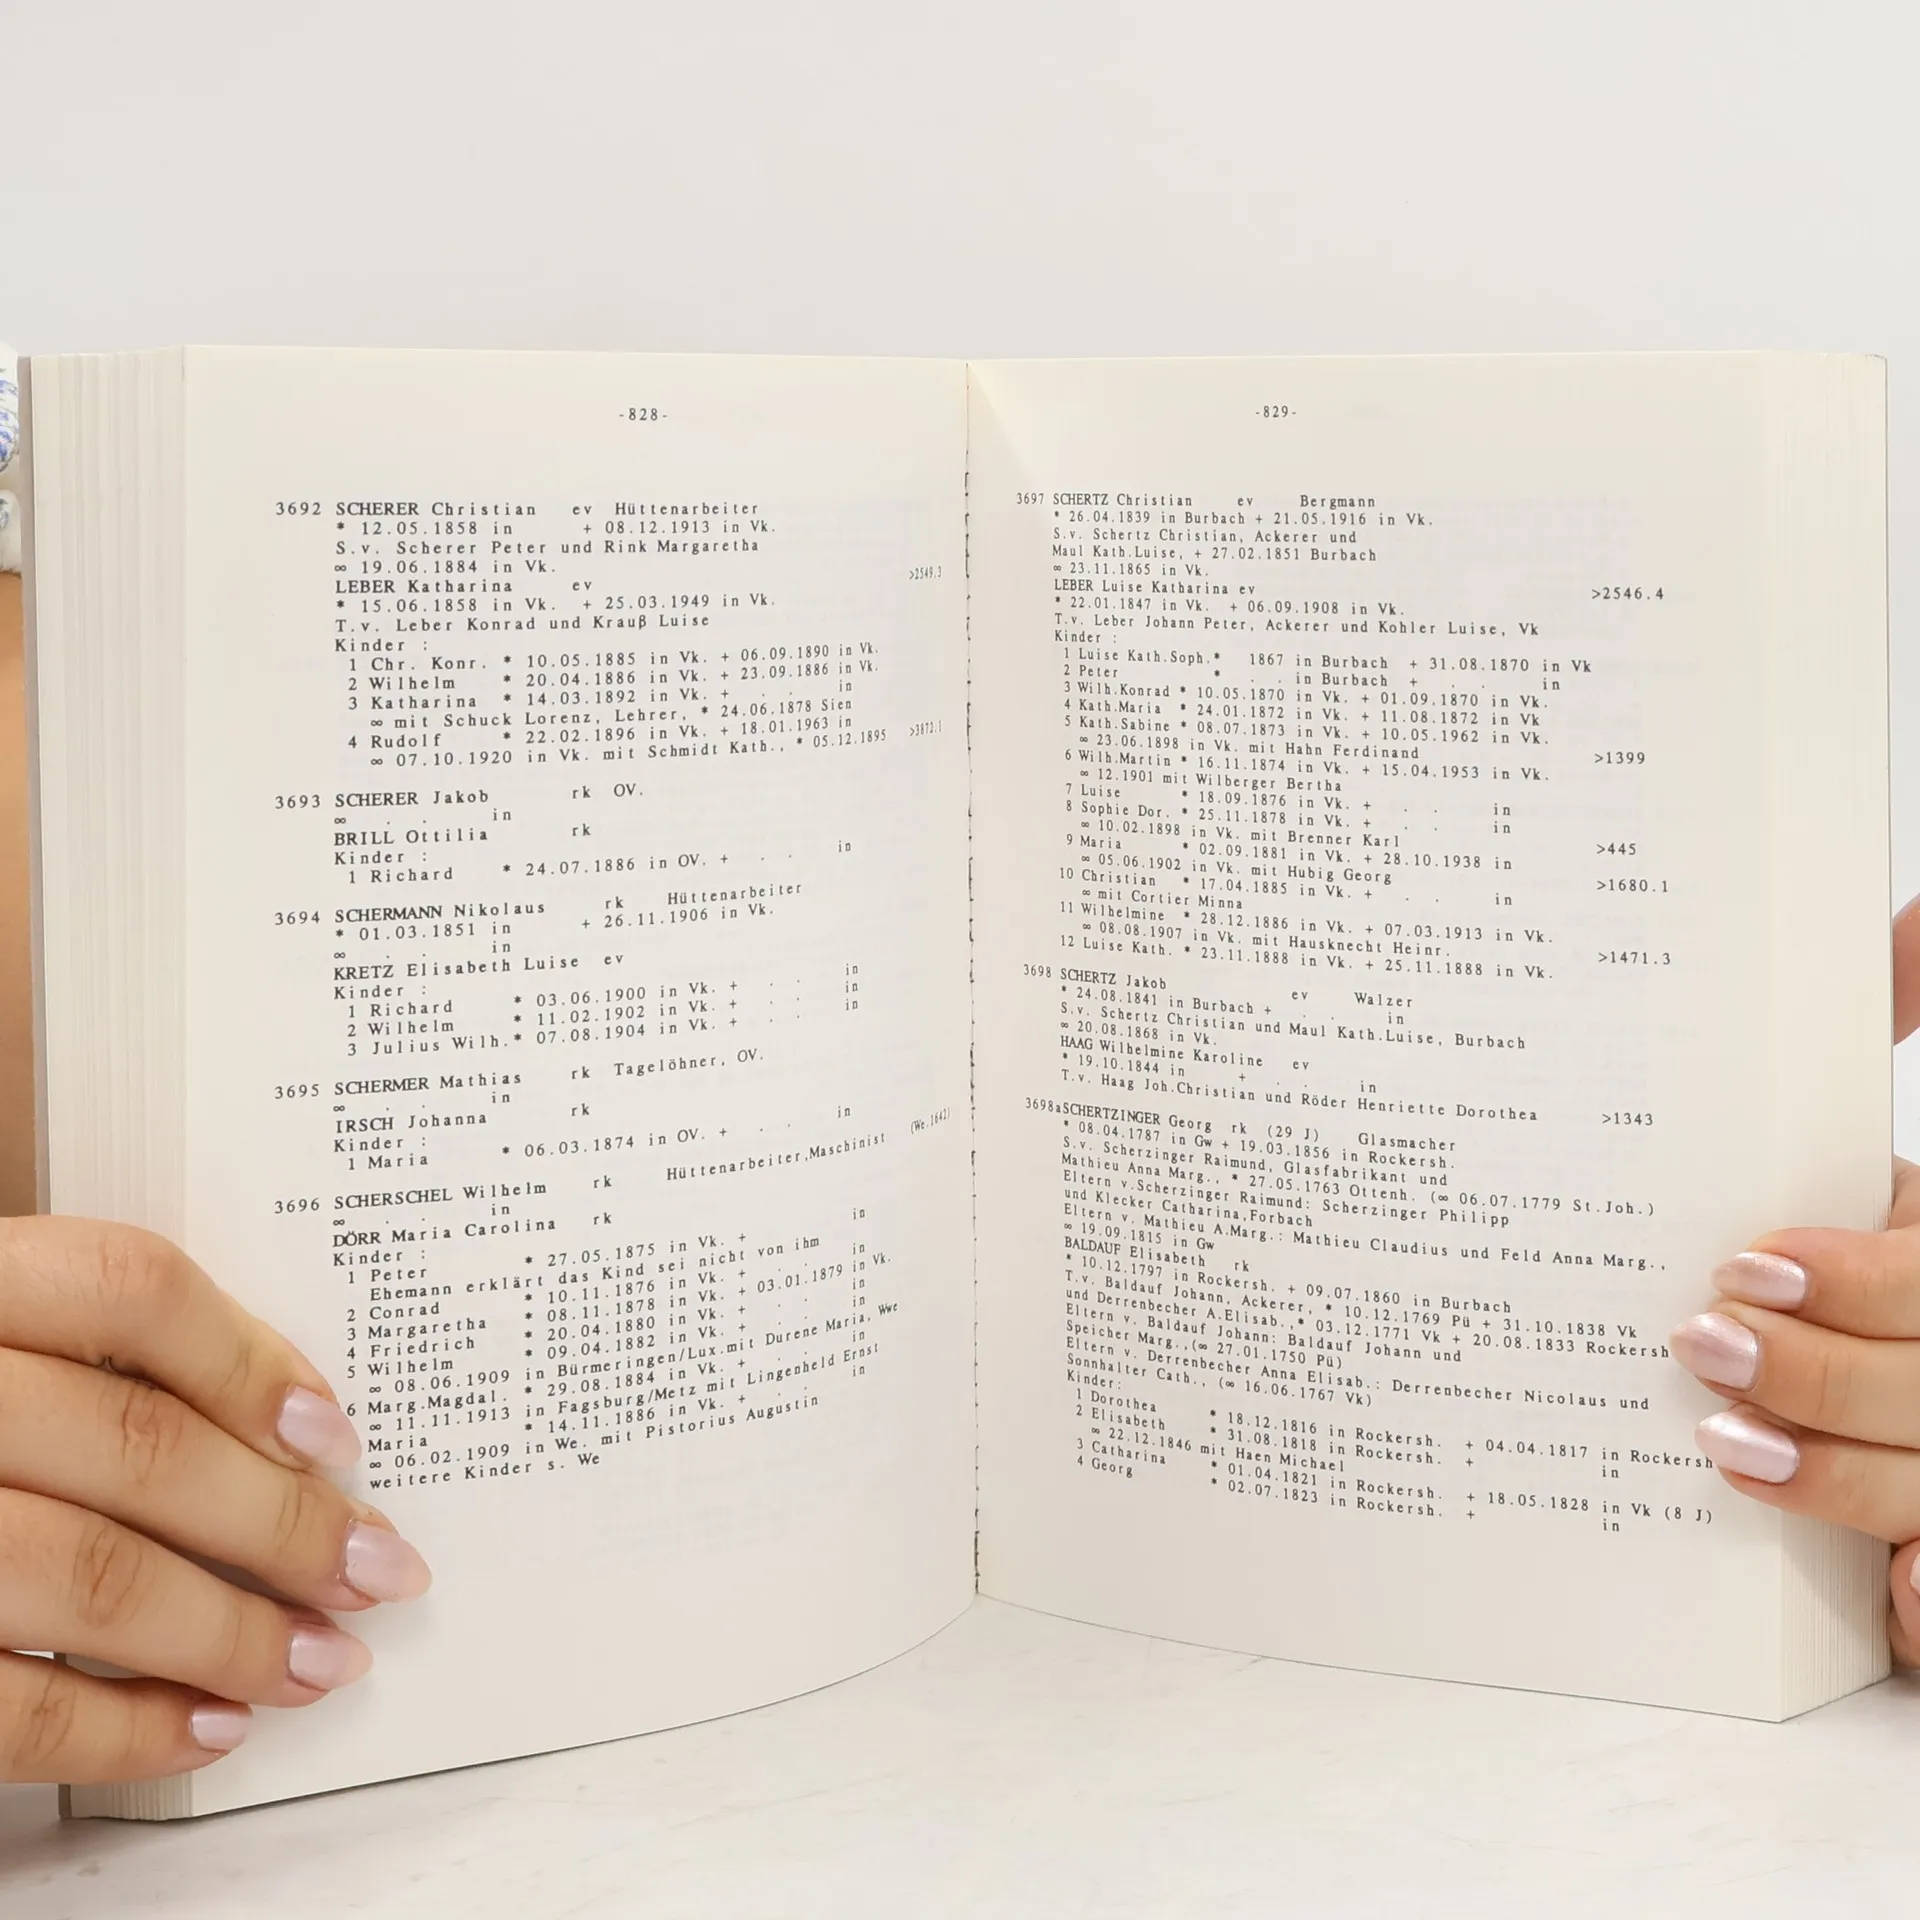 -828-
3692 SCHERER Christian ev Hüttenarbeiter
* 12.05.1858 in + 08.12.1913 in Vk.
S.v. Scherer Peter und Rink Margaretha
∞ 19.06.1884 in Vk.
LEBER Katharina ev >2549.3
* 15.06.1858 in Vk. + 25.03.1949 in Vk.
T.v. Leber Konrad und Krauß Luise
Kinder :
1 Chr. Konr. * 10.05.1885 in Vk. + 06.09.1890 in Vk.
2 Wilhelm * 20.04.1886 in Vk. + 23.09.1886 in Vk.
3 Katharina * 14.03.1892 in Vk. + . . in
∞ mit Schuck Lorenz, Lehrer, * 24.06.1878 Sien
4 Rudolf * 22.02.1896 in Vk. + 18.01.1963 in
∞ 07.10.1920 in Vk. mit Schmidt Kath., * 05.12.1895 >3872.1
3693 SCHERER Jakob rk OV.
∞ . . in
BRILL Ottilia rk
Kinder :
1 Richard * 24.07.1886 in OV. + . . in
3694 SCHERMANN Nikolaus rk Hüttenarbeiter
* 01.03.1851 in + 26.11.1906 in Vk.
∞ . . in
KRETZ Elisabeth Luise ev
Kinder :
1 Richard * 03.06.1900 in Vk. + . . in
2 Wilhelm * 11.02.1902 in Vk. + . . in
3 Julius Wilh.* 07.08.1904 in Vk. + . . in
3695 SCHERMER Mathias rk Tagelöhner, OV.
∞ . . in
IRSCH Johanna rk
Kinder :
1 Maria * 06.03.1874 in OV. + . . in
3696 SCHERSCHEL Wilhelm rk Hüttenarbeiter,Maschinist (We.1642)
∞ . . in
DÖRR Maria Carolina rk
Kinder :
1 Peter * 27.05.1875 in Vk. + in
Ehemann erklärt das Kind sei nicht von ihm
2 Conrad * 10.11.1876 in Vk. + . . in
3 Margaretha * 08.11.1878 in Vk. + 03.01.1879 in Vk.
4 Friedrich * 20.04.1880 in Vk. + . . in
5 Wilhelm * 09.04.1882 in Vk. + . . in
∞ 08.06.1909 in Bürmeringen/Lux.mit Durene Maria, Wwe
6 Marg.Magdal. * 29.08.1884 in Vk. + . . in
∞ 11.11.1913 in Fagsburg/Metz mit Lingenheld Ernst
Maria * 14.11.1886 in Vk. + . . in
∞ 06.02.1909 in We. mit Pistorius Augustin
weitere Kinder s. We
-829-
3697 SCHERTZ Christian ev Bergmann
* 26.04.1839 in Burbach + 21.05.1916 in Vk.
S.v. Schertz Christian, Ackerer und
Maul Kath.Luise, + 27.02.1851 Burbach
∞ 23.11.1865 in Vk.
LEBER Luise Katharina ev >2546.4
* 22.01.1847 in Vk. + 06.09.1908 in Vk.
T.v. Leber Johann Peter, Ackerer und Kohler Luise, Vk
Kinder :
1 Luise Kath.Soph.* 1867 in Burbach + 31.08.1870 in Vk
2 Peter * . . in Burbach + . . in
3 Wilh.Konrad * 10.05.1870 in Vk. + 01.09.1870 in Vk.
4 Kath.Maria * 24.01.1872 in Vk. + 11.08.1872 in Vk
5 Kath.Sabine * 08.07.1873 in Vk. + 10.05.1962 in Vk.
∞ 23.06.1898 in Vk. mit Hahn Ferdinand >1399
6 Wilh.Martin * 16.11.1874 in Vk. + 15.04.1953 in Vk.
∞ 12.1901 mit Wilberger Bertha
7 Luise * 18.09.1876 in Vk. + . . in
8 Sophie Dor. * 25.11.1878 in Vk. + . . in
∞ 10.02.1898 in Vk. mit Brenner Karl >445
9 Maria * 02.09.1881 in Vk. + 28.10.1938 in
∞ 05.06.1902 in Vk. mit Hubig Georg >1680.1
10 Christian * 17.04.1885 in Vk. + . . in
∞ mit Cortier Minna
11 Wilhelmine * 28.12.1886 in Vk. + 07.03.1913 in Vk.
∞ 08.08.1907 in Vk. mit Hausknecht Heinr. >1471.3
12 Luise Kath. * 23.11.1888 in Vk. + 25.11.1888 in Vk.
3698 SCHERTZ Jakob ev Walzer
* 24.08.1841 in Burbach + . . in
S.v. Schertz Christian und Maul Kath.Luise, Burbach
∞ 20.08.1868 in Vk.
HAAG Wilhelmine Karoline ev
* 19.10.1844 in + . . in
T.v. Haag Joh.Christian und Röder Henriette Dorothea >1343
3698aSCHERTZINGER Georg rk (29 J) Glasmacher
* 08.04.1787 in Gw + 19.03.1856 in Rockersh.
S.v. Scherzinger Raimund, Glasfabrikant und
Mathieu Anna Marg., * 27.05.1763 Ottenh. (∞ 06.07.1779 St.Joh.)
Eltern v.Scherzinger Raimund: Scherzinger Philipp
und Klecker Catharina,Forbach
Eltern v. Mathieu A.Marg.: Mathieu Claudius und Feld Anna Marg.,
∞ 19.09.1815 in Gw
BALDAUF Elisabeth rk
* 10.12.1797 in Rockersh. + 09.07.1860 in Burbach
T.v. Baldauf Johann, Ackerer, * 10.12.1769 Pü + 31.10.1838 Vk
und Derrenbecher A.Elisab.,* 03.12.1771 Vk + 20.08.1833 Rockersh
Eltern v. Baldauf Johann: Baldauf Johann und
Speicher Marg.,(∞ 27.01.1750 Pü)
Eltern v. Derrenbecher Anna Elisab.: Derrenbecher Nicolaus und
Sonnhalter Cath., (∞ 16.06.1767 Vk)
Kinder:
1 Dorothea * 18.12.1816 in Rockersh. + 04.04.1817 in Rockersh
2 Elisabeth * 31.08.1818 in Rockersh. + in
∞ 22.12.1846 mit Haen Michael
3 Catharina * 01.04.1821 in Rockersh. + 18.05.1828 in Vk (8 J)
4 Georg * 02.07.1823 in Rockersh. + in